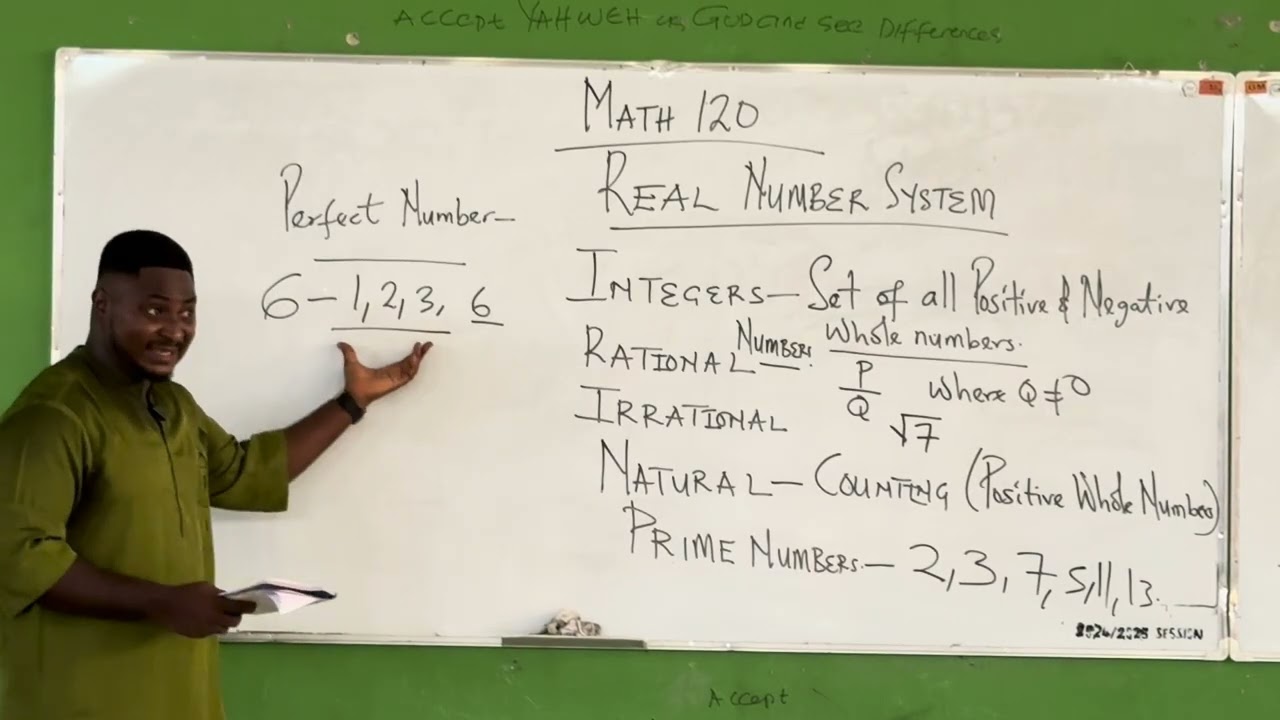 ACCEPT YAHWEH as GOD and see Differences
MATH 120
REAL NUMBER SYSTEM
Perfect Number-
6 - 1, 2, 3, 6
INTEGERS - Set of all Positive & Negative
Whole numbers.
RATIONAL Numbers P/Q where Q ≠ 0
IRRATIONAL √7
NATURAL - COUNTING (Positive Whole Number)
PRIME NUMBERS - 2, 3, 7, 5, 11, 13.
2024/2025 SESSION
Accept